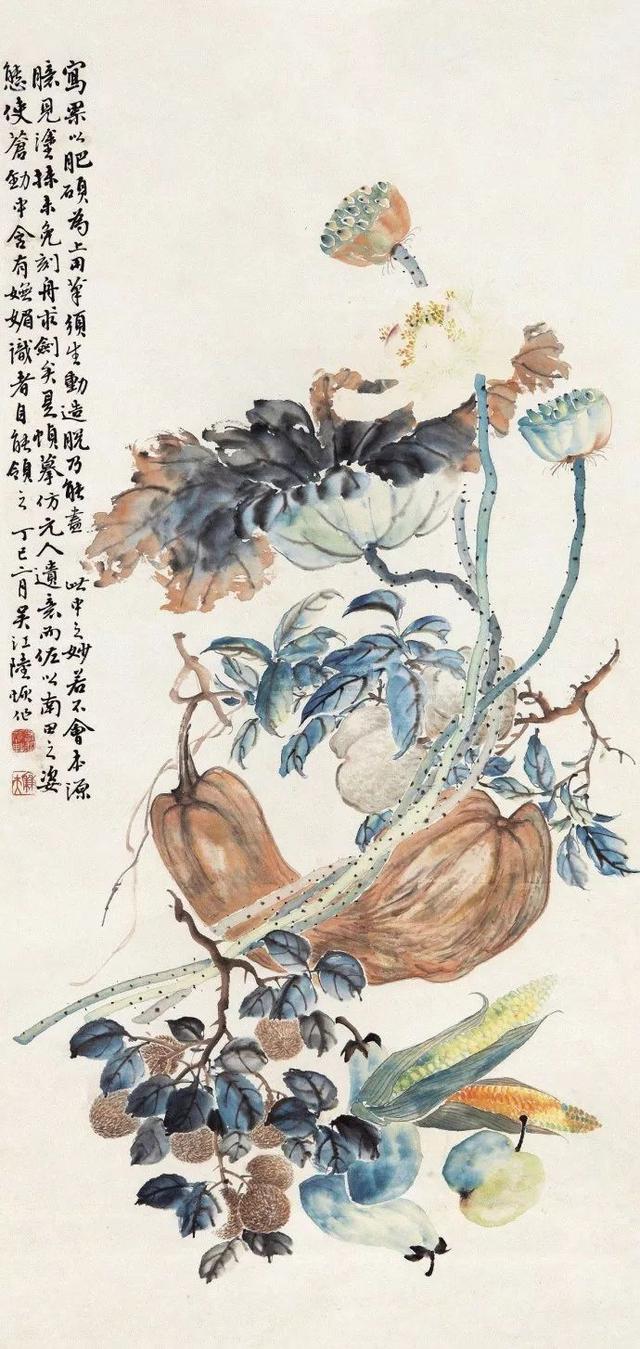 寫果以肥碩為上用筆須生動造脫乃能盡此中之妙若不會本源
臆見塗抹未免刻舟求劍矣是幀摹仿元人遺意而佐以南田之姿
態使蒼勁中含有嫵媚識者自能領之丁巳二月吳江陸恢作